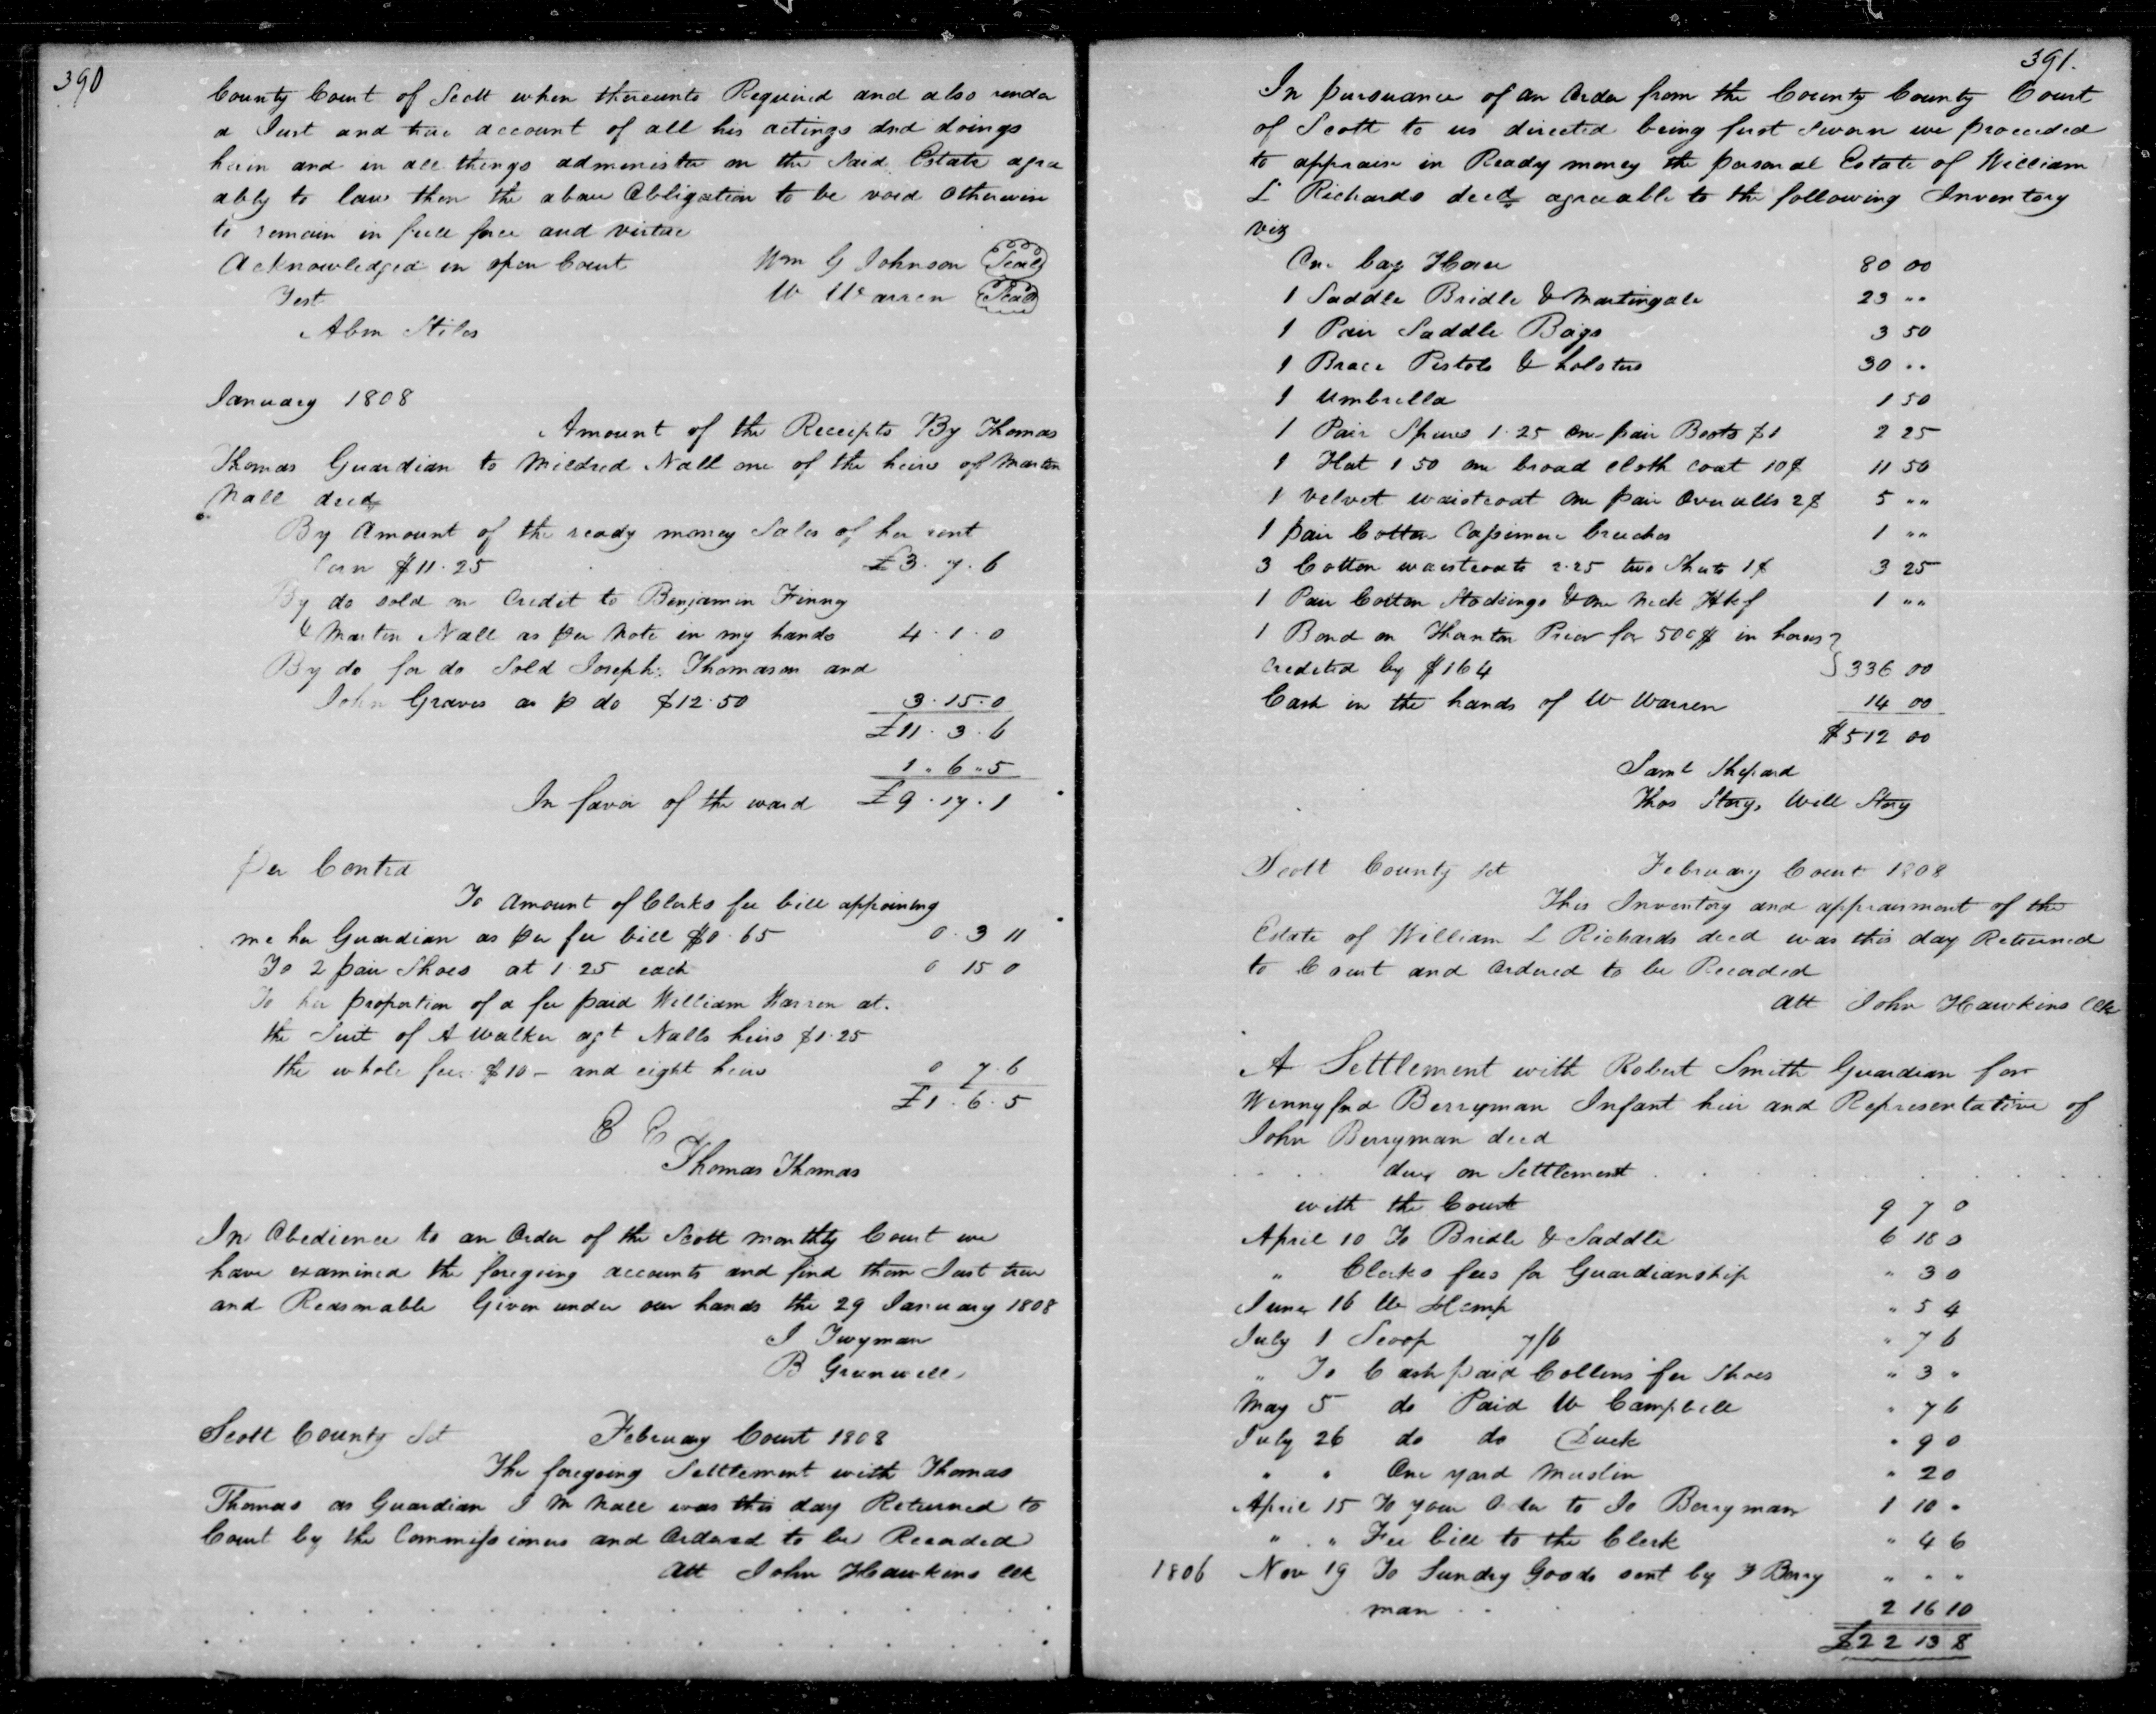 390
County Court of Scott when thereunto Required and also render
a Just and true account of all his actings and doings
herin and in all things administer on the Said Estate agre
ably to law then the above Obligation to be void otherwise
to remain in full force and virtue
Acknowledged in open Court Wm G Johnson Seal
Test W Warren Seal
Abm Stiles
January 1808
Amount of the Receipts By Thomas
Thomas Guardian to Mildred Nall one of the heirs of Martin
Nall decd
By Amount of the ready money Sales of her rent
Corn $11.25 £3.7.6
By do sold on Credit to Benjamin Finny
& Martin Nall as per Note in my hands 4.1.0
By do for do Sold Joseph Thomason and
John Graves as p do $12.50 3.15.0
£11.3.6
1.6.5
In favor of the ward £9.17.1
Per Contra
To Amount of Clerks fee bill appoining
me her Guardian as per fee bill $0.65 0.3 11
To 2 pair Shoes at 1.25 each 0 15 0
To her proportion of a fee paid William Warren at
the Suit of A Walker agt Nalls heirs $1.25
the whole fee $10 - and eight heirs 0 7.6
£1.6.5
E E
Thomas Thomas
In Obedience to an Order of the Scott monthly Court we
have examined the foregoing accounts and find them Just true
and Reasonable Given under our hands the 29 January 1808
J Twyman
B Grunwell
Scott County Sct February Court 1808
The foregoing Settlement with Thomas
Thomas as Guardian J M Nall was this day Returned to
Court by the Commissioners and Ordered to be Recorded
Att John Hawkins Clk
391.
In pursuance of an Order from the County County Court
of Scott to us directed being first Sworn we proceeded
to appraise in Ready money the personal Estate of William
L Richards decd agreeable to the following Inventory
viz
One bay Horse 80 00
1 Saddle Bridle & Martingale 23 ""
1 Pair Saddle Bags 3 50
1 Brace Pistols & holsters 30 ..
1 Umbrella 1 50
1 Pair Spures 1.25 One pair Boots $1 2 25
1 Hat 1 50 one broad cloth coat 10$ 11 50
1 Velvet waistcoat One pair Overalls 2$ 5 ""
1 pair Cotton Cassimere breeches 1 ""
3 Cotton waistcoats 2.25 two Shirts 1$ 3 25
1 Pair Cotton Stockings & one neck Hkf 1 ""
1 Bond on Thornton Prior for 500$ in horses
Credited by $164 336 00
Cash in the hands of W Warren 14 00
$512 00
Saml Shepard
Thos Story, Will Story
Scott County Sct February Court 1808
This Inventory and appraisment of the
Estate of William L Richards decd was this day Returned
to Court and Ordered to be Recorded
Att John Hawkins Clk
A Settlement with Robert Smith Guardian for
Wennyfred Berryman Infant heir and Representative of
John Berryman decd
due on Settlement
with the Court 9 7 0
April 10 To Bridle & Saddle 6 18 0
" Clerks fees for Guardianship " 3 0
June 16 lb Hemp " 5 4
July 1 Scoop 7/6 " 7 6
" To Cash paid Collins for Shoes " 3 "
May 5 do Paid W Campbell " 7 6
July 26 do do Duck " 9 0
" " One yard Muslin " 2 0
April 15 To your Order to Jo Berryman 1 10 "
" " Fee bill to the Clerk " 4 6
1806 Nov 19 To Sundry Goods sent by F Berry " " "
man 2 16 10
£22 13 8